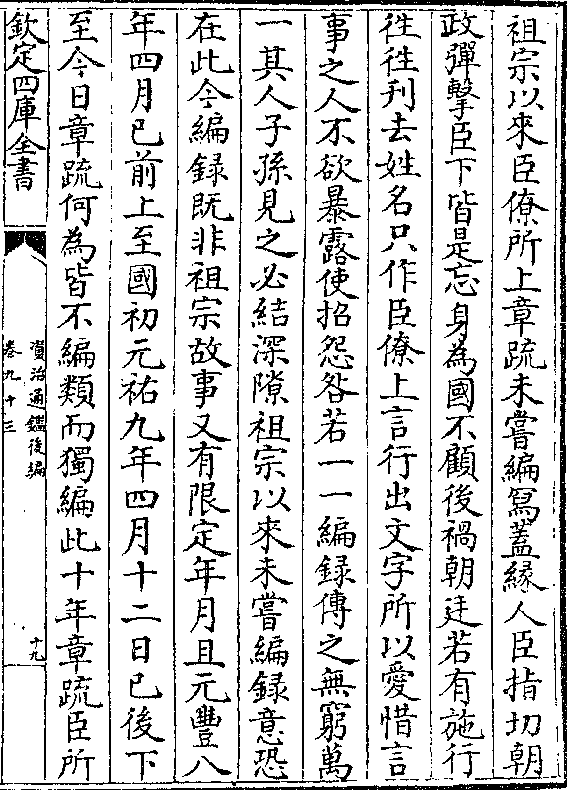 祖宗以來臣僚所上章疏未嘗編寫蓋緣人臣指切朝
政彈擊臣下皆是忘身為國不顧後禍朝廷若有施行
徃徃刋去姓名只作臣僚上言行出文字所以愛惜言
事之人不欲暴露使招怨咎若一一編録傳之無窮萬
一其人子孫見之必結深隙祖宗以來未嘗編録意恐
在此今編録既非祖宗故事又有限定年月且元豐八
年四月已前上至國初元祐九年四月十二日已後下
至今日章疏何為皆不編類而獨編此十年章疏臣所
欽定四庫全書
資治通鑑後編
卷九十三
十九